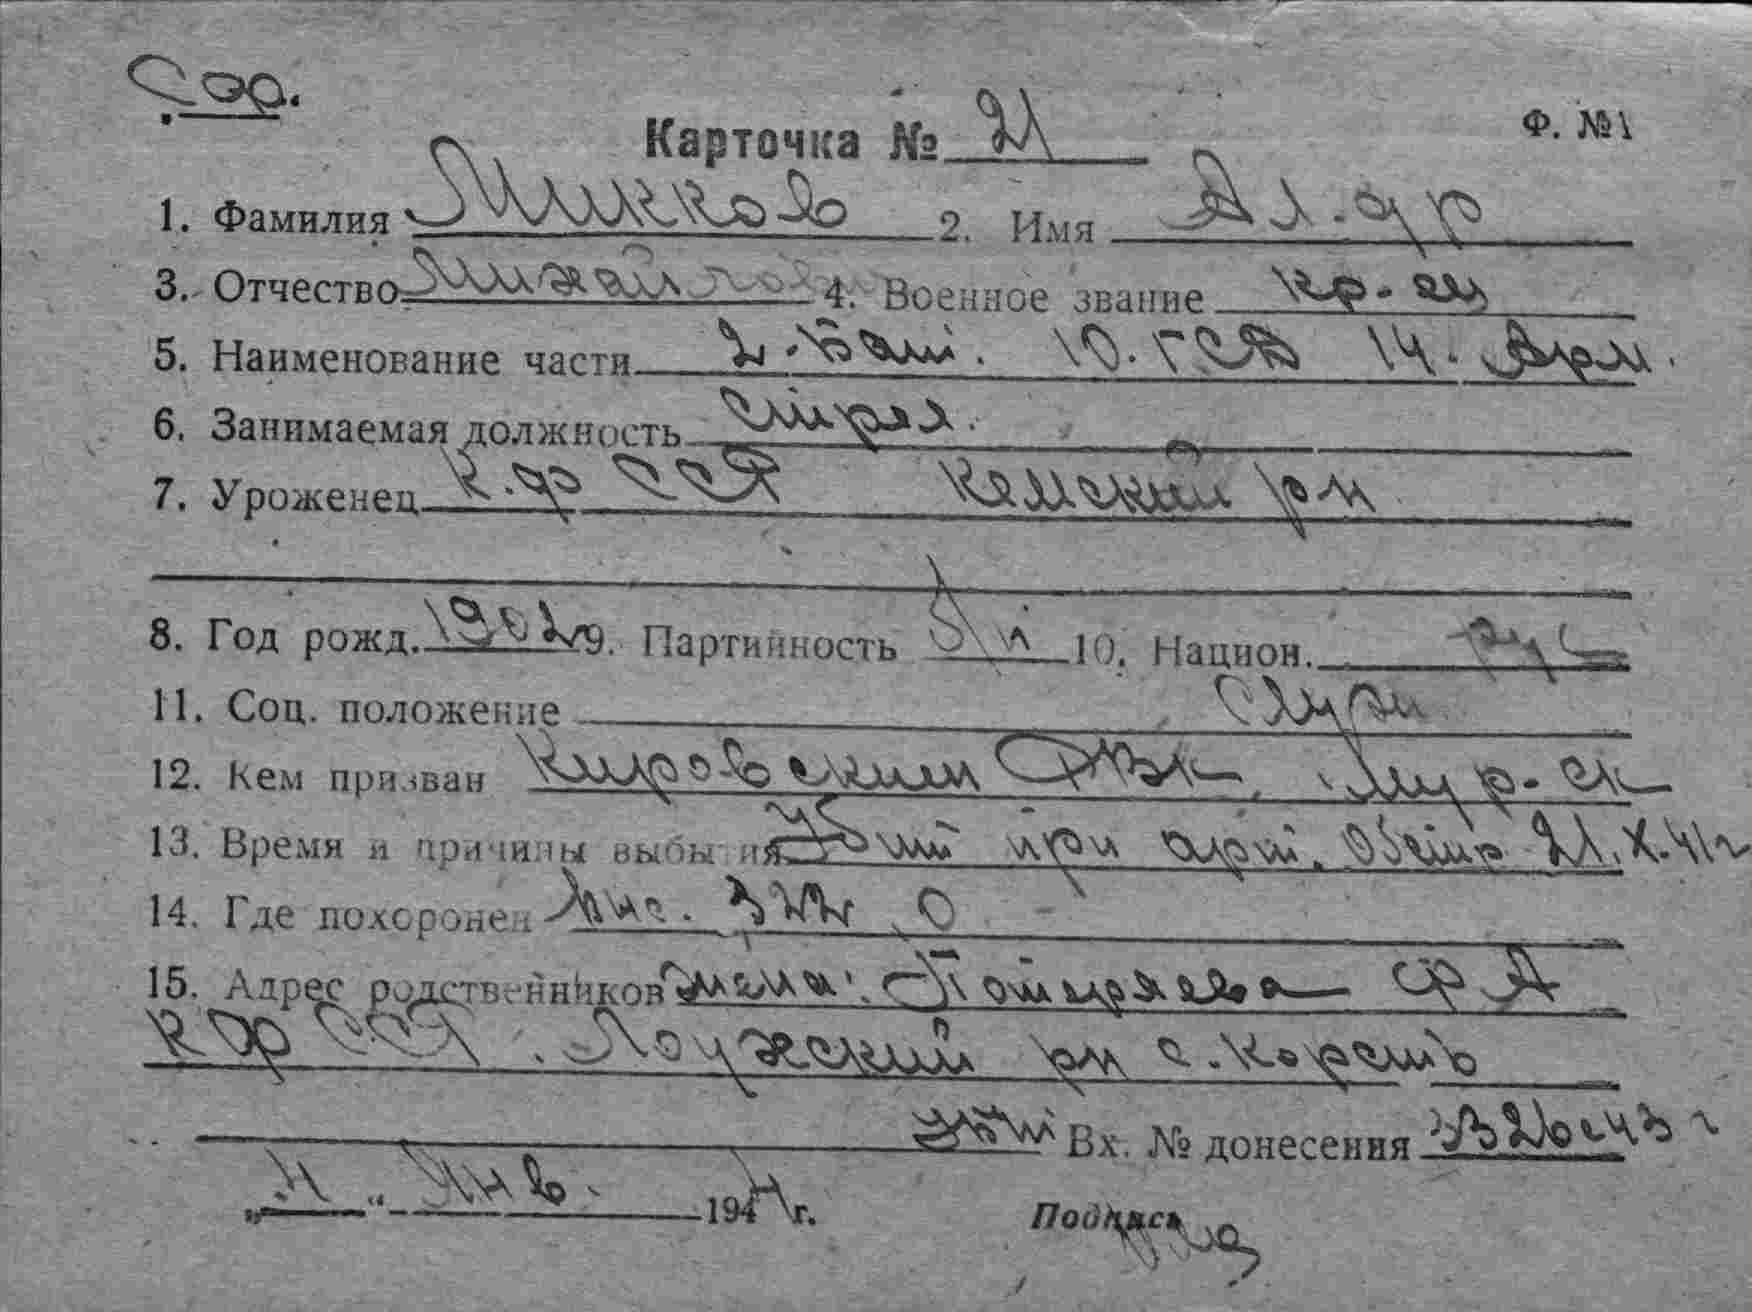 Сор.
Карточка № 21 Ф. №1
1. Фамилия Микков 2. Имя Ал-др
3. Отчество Михайлов 4. Военное звание кр-ец
5. Наименование части 2-бат. 10. ГСД 14. Арм.
6. Занимаемая должность стрел.
7. Уроженец К.ф ССР Кемский рн
8. Год рожд. 1902 9. Партийность б/п 10. Национ. рус
11. Соц. положение служ
12. Кем призван Кировским РВК, Мур-ск
13. Время и причины выбытия Убит при арт. обстр 21.X.41г
14. Где похоронен выс. 322,0
15. Адрес родственников жена: Потеряева
К Ф ССР. Лоухский рн с.
убит Вх. № донесения
„4“ Янв. 1944г. Подпись